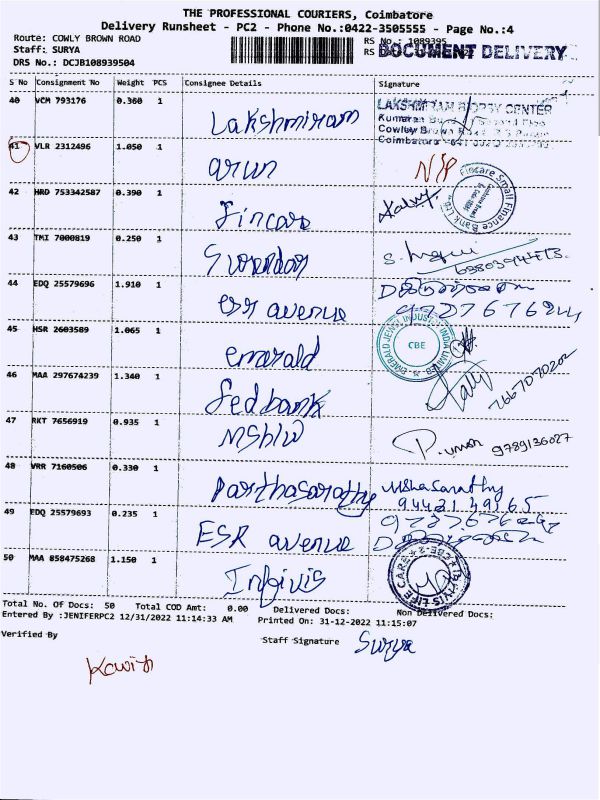 THE PROFESSIONAL COURIERS, Coimbatore
Delivery Runsheet - PC2 - Phone No.:0422-3505555 - Page No.:4
Route: COWLY BROWN ROAD
RS No.: 1089395
Staff: SURYA
RS
DOCUMENT DELIVERY
DRS No.: DCJB108939504
S No Consignment No Weight PCS Consignee Details Signature
40 VCM 793176 0.360 1 Lakshmiram LAKSHMIRAM BIOPSY CENTER
Kumaran
Cowley Brown
Coimbatore
41 VLR 2312496 1.050 1 arun N/P
42 HRD 753342587 0.390 1 Fincare Fincare Small Finance Bank Ltd.
43 TMI 7000819 0.250 1 Surendar
44 EDQ 25579696 1.910 1 esr avenue
45 HSR 2603589 1.065 1 emerald EMERALD JEWEL INDUSTRY INDIA LIMITED CBE
46 MAA 297674239 1.340 1 Fedbank 7667070202
47 RKT 7656919 0.935 1 MSblw 9789136027
48 VRR 7160506 0.330 1 Parthasarathy
94431 49165
49 EDQ 25579693 0.235 1 ESR avenue
50 MAA 858475268 1.150 1 Infivis LIFE CARE CBE-2
Total No. Of Docs: 50 Total COD Amt: 0.00 Delivered Docs: Non Delivered Docs:
Entered By :JENIFERPC2 12/31/2022 11:14:33 AM Printed On: 31-12-2022 11:15:07
Verified By Staff Signature Surya